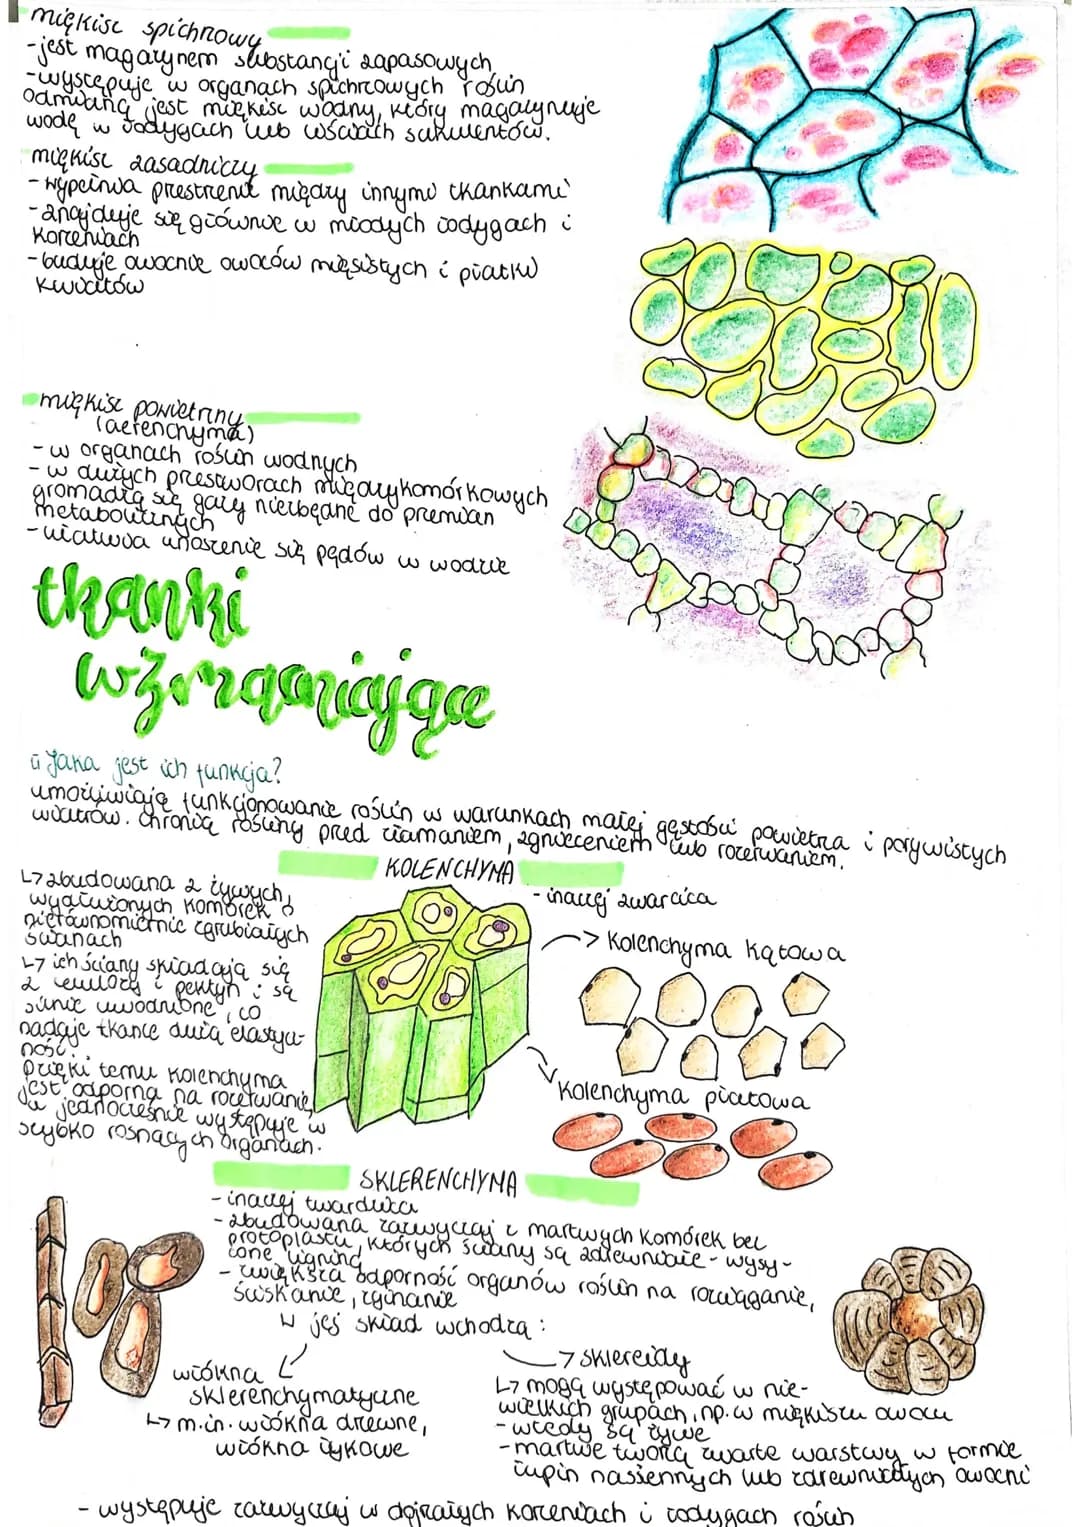 miękisz spichrzowy
- jest magazynem substancji zapasowych
- występuje w organach spichrzowych roślin
odmianą jest miękisz wodny, który magazynuje
wodę w łodygach lub liściach sukulentów.
miękisz zasadniczy
- wypełnia przestrzenie między innymi tkankami
- znajduje się głównie w młodych łodygach i
korzeniach
- buduje owocnie owoców mięsistych i płatki
kwiatów
miękisz powietrzny
(aerenchyma)
- w organach roślin wodnych
- w dużych przestworach międzykomórkowych
gromadzą się gazy niezbędne do przemian
metabolicznych
- ułatwia unoszenie się pędów w wodzie
tkanki
wzmacniające
Jaka jest ich funkcja?
umożliwiają funkcjonowanie roślin w warunkach małej gęstości powietrza i porywistych
wiatrów. Chronią rośliny przed złamaniem, zgnieceniem lub rozerwaniem.
KOLENCHYMA
- inaczej zwarcica
↳ zbudowana z żywych,
wydłużonych komórek o
nierównomiernie zgrubiałych
ścianach
↳ ich ściany składają się
z celulozy i pektyn i są
silnie uwodnione, co
nadaje tkance dużą elastycz-
ność.
Dzięki temu kolenchyma
jest odporna na rozerwanie,
a jednocześnie występuje w
szybko rosnących organach.
-> Kolenchyma kątowa
Kolenchyma płatowa
SKLERENCHYMA
- inaczej twardzica
- zbudowana zazwyczaj z martwych komórek bez
protoplastu, których ściany są zdrewniałe - wysy-
cone ligniną
- zwiększa odporność organów roślin na rozciąganie,
ściskanie, zginanie
W jej skład wchodzą:
włókna
sklerenchymatyczne
↳ m.in. włókna drzewne,
włókna łykowe
-> sklereidy
↳ mogą występować w nie-
wielkich grupach, np. w miękiszu owocu
- wtedy są żywe
- martwe tworzą zwarte warstwy w formie
łupin nasiennych lub zdrewniałych owocni
- występuje zazwyczaj w dojrzałych korzeniach i łodygach roślin